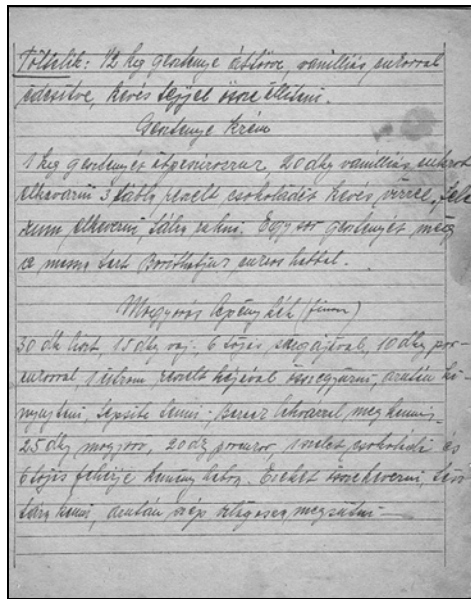 Töltelék: 1/2 kg gesztenye áttörve, vaniliás cukorral
édesítve, kevés tejjel össze állítani.
Gesztenye krém
1 kg gesztenyét 20 dkg vaniliás cukrot
elkavarni 3 tábla reszelt csokoládét kevés vízzel,
elkeverni, tálra rakni. Egy sor gesztenyét még
a massa tart habbal.
Mogyorós lepény (finom)
30 dk liszt, 15 dkg vaj, 6 tojás sárgájával, 10 dkg por-
cukorral, 1 citrom reszelt héjával összegyúrni, azután ki
nyujtani, tepsibe tenni. Baracz lekvárral megkenni,
25 dkg mogyoró, 20 dg porcukor, 1 szelet csokoládé és
6 tojás fehérje kemény habja. Ezeket össze keverni,
kenni, azután szép világosan megsütni —